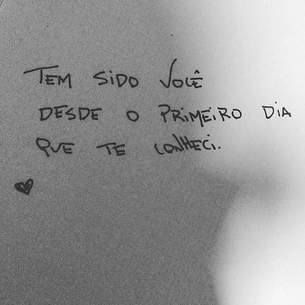 TEM SIDO VOCÊ
DESDE O PRIMEIRO DIA
QUE TE CONHECI.